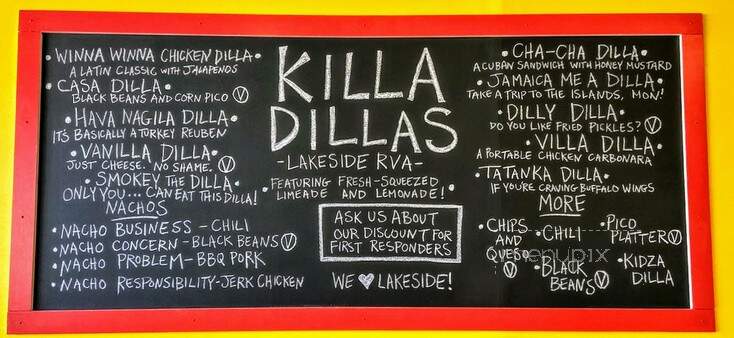 • WINNA WINNA CHICKEN DILLA •
A LATIN CLASSIC WITH JALAPENOS
• CASA DILLA •
BLACK BEANS AND CORN PICO Ⓥ
• HAVA NAGILA DILLA •
IT'S BASICALLY A TURKEY REUBEN
• VANILLA DILLA •
JUST CHEESE. NO SHAME. Ⓥ
• SMOKEY THE DILLA •
ONLY YOU... CAN EAT THIS DILLA!
NACHOS
• NACHO BUSINESS - CHILI
• NACHO CONCERN - BLACK BEANS Ⓥ
• NACHO PROBLEM - BBQ PORK
• NACHO RESPONSIBILITY - JERK CHICKEN
KILLA
DILLAS
- LAKESIDE RVA -
FEATURING FRESH-SQUEEZED
• LIMEADE AND LEMONADE! •
ASK US ABOUT
OUR DISCOUNT FOR
FIRST RESPONDERS
WE ♥ LAKESIDE!
• CHA-CHA DILLA •
A CUBAN SANDWICH WITH HONEY MUSTARD
• JAMAICA ME A DILLA •
TAKE A TRIP TO THE ISLANDS, MON!
• DILLY DILLA •
DO YOU LIKE FRIED PICKLES? Ⓥ
• VILLA DILLA •
A PORTABLE CHICKEN CARBONARA
• TATANKA DILLA •
IF YOU'RE CRAVING BUFFALO WINGS
MORE
• CHIPS
AND
QUESO
Ⓥ
• CHILI
• BLACK
BEANS Ⓥ
• PICO
PLATTER Ⓥ
• KIDZA
DILLA
menupix